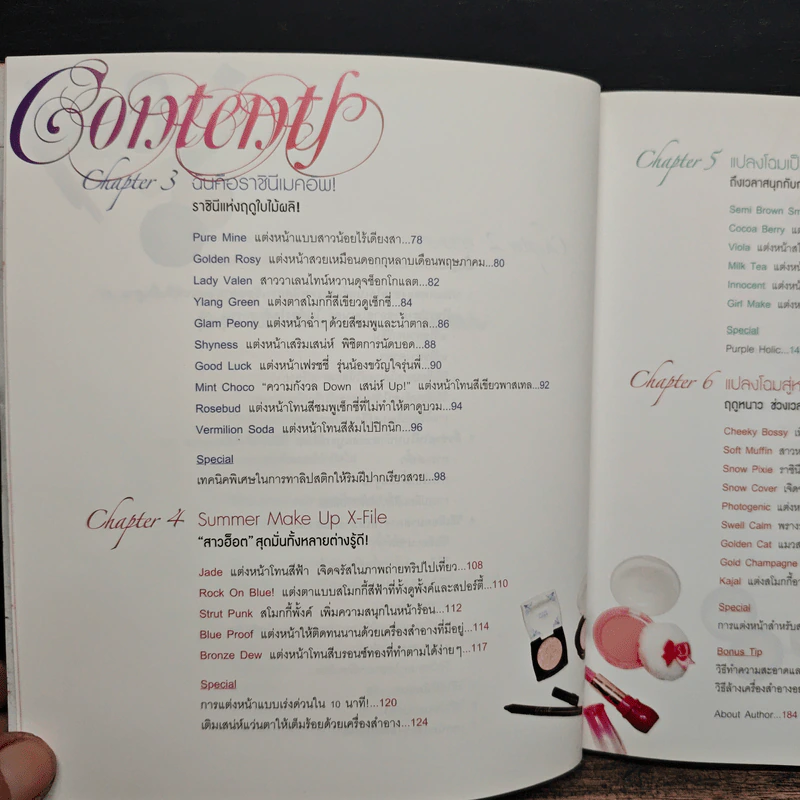 Contents
Chapter 3 ฉันคือราชินีเมคอัพ!
ราชินีแห่งฤดูใบไม้ผลิ!
Pure Mine แต่งหน้าแบบสาวน้อยไร้เดียงสา...78
Golden Rosy แต่งหน้าสวยเหมือนดอกกุหลาบเดือนพฤษภาคม...80
Lady Valen สาววาเลนไทน์หวานดุจช็อกโกแลต...82
Ylang Green แต่งตาสโมกกี้สีเขียวดูเซ็กซี่...84
Glam Peony แต่งหน้าฉ่ำๆ ด้วยสีชมพูและน้ำตาล...86
Shyness แต่งหน้าเสริมเสน่ห์ พิชิตการนัดบอด...88
Good Luck แต่งหน้าเฟรชชี่ รุ่นน้องขวัญใจรุ่นพี่...90
Mint Choco “ความกังวล Down เสน่ห์ Up!” แต่งหน้าโทนสีเขียวพาสเทล...92
Rosebud แต่งหน้าโทนสีชมพูเซ็กซี่ที่ไม่ทำให้ตาดูบวม...94
Vermilion Soda แต่งหน้าโทนสีส้มไปปิกนิก...96
Special
เทคนิคพิเศษในการทาลิปสติกให้ริมฝีปากเรียวสวย...98
Chapter 4 Summer Make Up X-File
“สาวฮ็อต” สุดมั่นทั้งหลายต่างรู้ดี!
Jade แต่งหน้าโทนสีฟ้า เจิดจรัสในภาพถ่ายทริปไปเที่ยว...108
Rock On Blue! แต่งตาแบบสโมกกี้สีฟ้าที่ทั้งดูพั้งค์และสปอร์ตี้...110
Strut Punk สโมกกี้พั้งค์ เพิ่มความสนุกในหน้าร้อน...112
Blue Proof แต่งหน้าให้ติดทนนานด้วยเครื่องสำอางที่มีอยู่...114
Bronze Dew แต่งหน้าโทนสีบรอนซ์ทองที่ทำตามได้ง่ายๆ...117
Special
การแต่งหน้าแบบเร่งด่วนใน 10 นาที!...120
เติมเสน่ห์แว่นตาให้เต็มร้อยด้วยเครื่องสำอาง...124
Chapter 5 แปลงโฉมเป็
ถึงเวลาสนุกกับก
Semi Brown Sm
Cocoa Berry แ
Viola แต่งหน้าส
Milk Tea แต่งหน้
Innocent แต่งหน้
Girl Make แต่งหน้
Special
Purple Holic...14
Chapter 6 แปลงโฉมสู่ห
ฤดูหนาว ช่วงเวล
Cheeky Bossy เ
Soft Muffin สาวห
Snow Pixie ราชินี
Snow Cover เจิดจ
Photogenic แต่งห
Swell Calm พราง
Golden Cat แมวส
Gold Champagne
Kajal แต่งสโมกกี้อา
Special
การแต่งหน้าสำหรับส
Bonus Tip
วิธีทำความสะอาดแล
วิธีล้างเครื่องสำอางอ
About Author...184